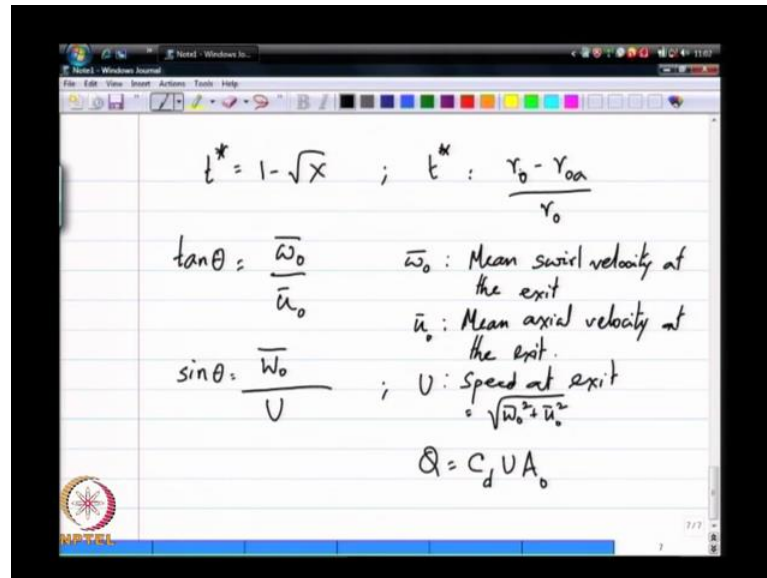 Note1 - Windows Jo...
11:02
Note1 - Windows Journal
File Edit View Insert Actions Tools Help
t* = 1 - √X ; t* : (r₀ - r₀ₐ) / r₀
tanθ = ω̄₀ / ū₀
ω̄₀ : Mean swirl velocity at
the exit
ū₀ : Mean axial velocity at
the exit.
sinθ = W̄₀ / U ; U : Speed at exit
= √(ω̄₀² + ū₀²)
Q = C_d U A₀
NPTEL
7/7
7